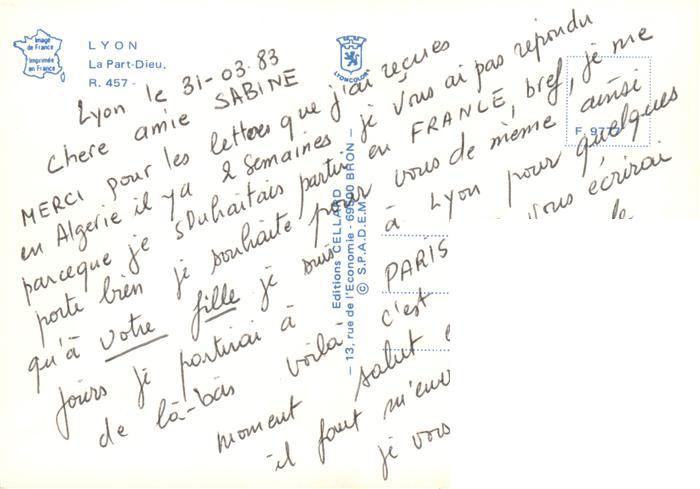 Image
de France
Imprimée
en France
LYON
La Part-Dieu.
R. 457 -
LYONCOLOR
F 97
Editions CELLARD
- 13, rue de l'Economie - 69500 BRON -
© S.P.A.D.E.M.
Lyon le 31-03.83
chere amie SABINE
MERCI pour les lettres que j'ai reçues
en Algerie il ya 2 semaines je vous ai pas repondu
parceque je souhaitais partir en FRANCE, bref, je me
porte bien je souhaite pour vous de même ainsi
qu'à votre fille je suis à Lyon pour quelques
jours je partirai à PARIS vous écrirai
de là-bas voilà c'est
moment salut
il faut m'env
je vous